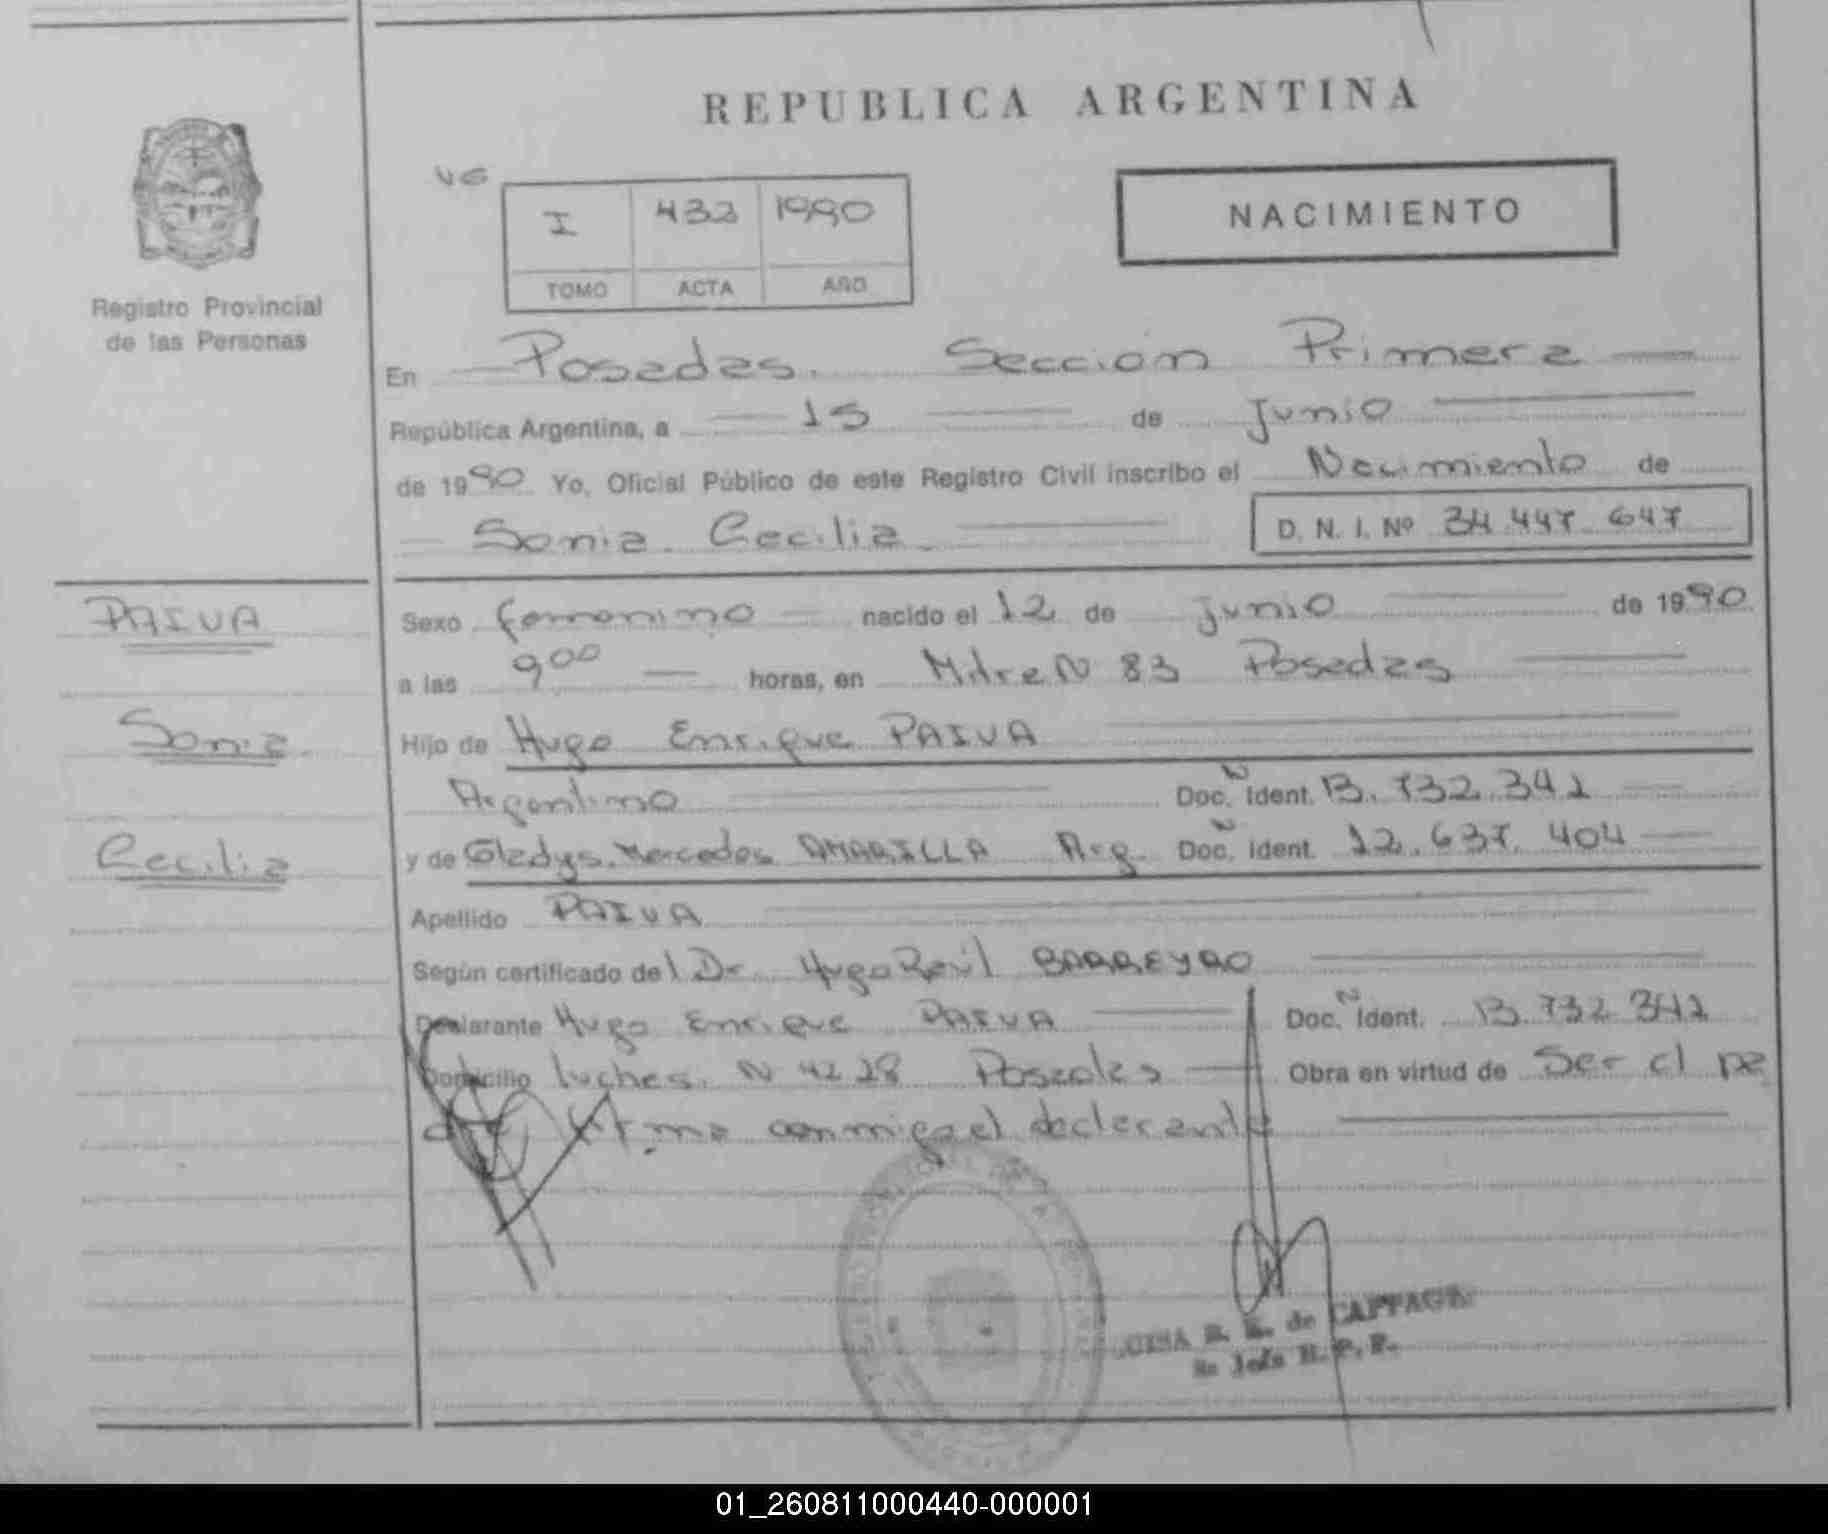 REPUBLICA ARGENTINA
NACIMIENTO
I 433 1990
TOMO ACTA AÑO
Registro Provincial
de las Personas
En Posadas. Sección Primera
República Argentina, a 15 de junio
de 1990 Yo, Oficial Público de este Registro Civil inscribo el Nacimiento de
Sonia Cecilia
D. N. I. Nº 34.447.647
PAIVA
Sonia
Cecilia
Sexo femenino nacido el 12 de junio de 1990
a las 9 00 horas, en Mitre N 83 Posadas
Hijo de Hugo Enrique PAIVA
Argentino Doc. N Ident. 13.732.341
y de Gladys Mercedes AMARILLA Arg. Doc. N Ident. 12.637.404
Apellido PAIVA
Según certificado del Dr. Hugo Raúl BARREYRO
Declarante Hugo Enrique PAIVA Doc. N Ident. 13.732.341
Domicilio N 4228 Posadas Obra en virtud de Ser el pa
dre firma conmigo el declarante
de CAFFAGE
01_260811000440-000001